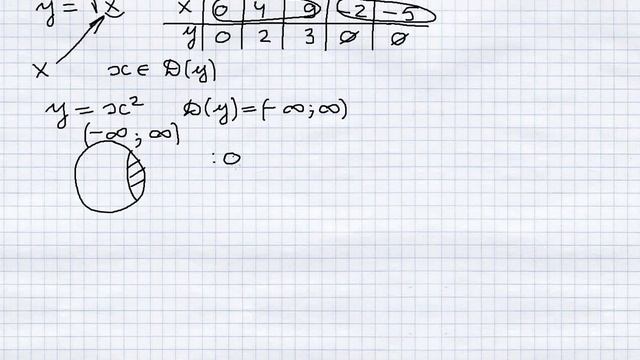 y = √x
x 0 4 9 -2 -5
y 0 2 3 ∅ ∅
x x ∈ D(y)
y = x² D(y) = (-∞; ∞)
(-∞; ∞)
: 0